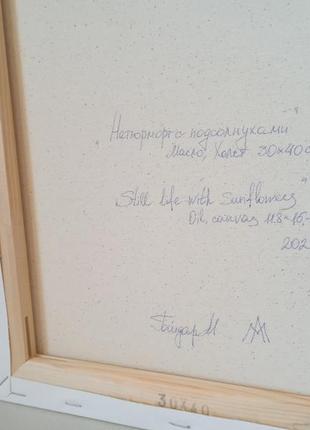 "Натюрморт с подсолнухами"
Масло, Холст 30×40 с
"Still life with Sunflowers"
Oil, canvas 11.8×15.
202
Гайдар М
30X40